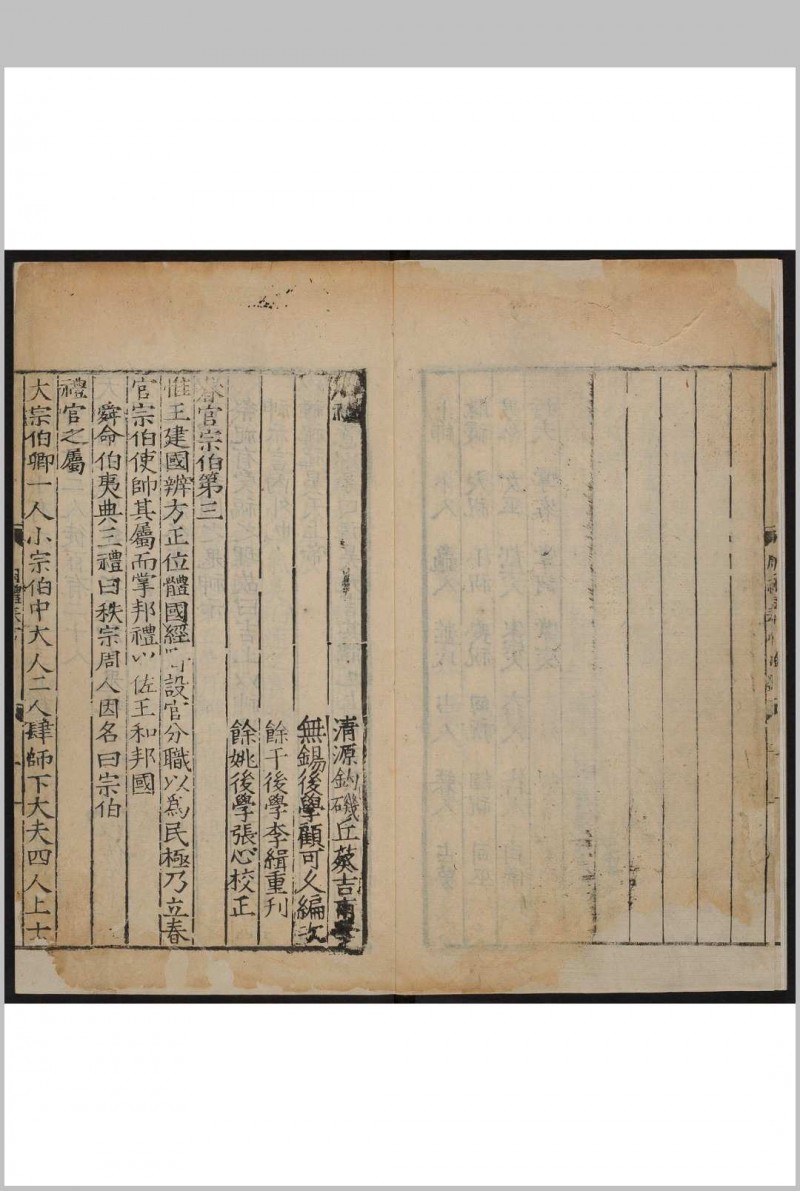 周禮
清源釣磯丘葵吉甫學
無錫後學顧可久編次
餘干後學李緝重刊
餘姚後學張心校正
春官宗伯第三
惟王建國辨方正位體國經 設官分職以為民極乃立春
官宗伯使帥其屬而掌邦禮以佐王和邦國
舜命伯夷典三禮曰秩宗周人因名曰宗伯
禮官之屬
大宗伯卿一人小宗伯中大人二人肆師下大夫四人上士